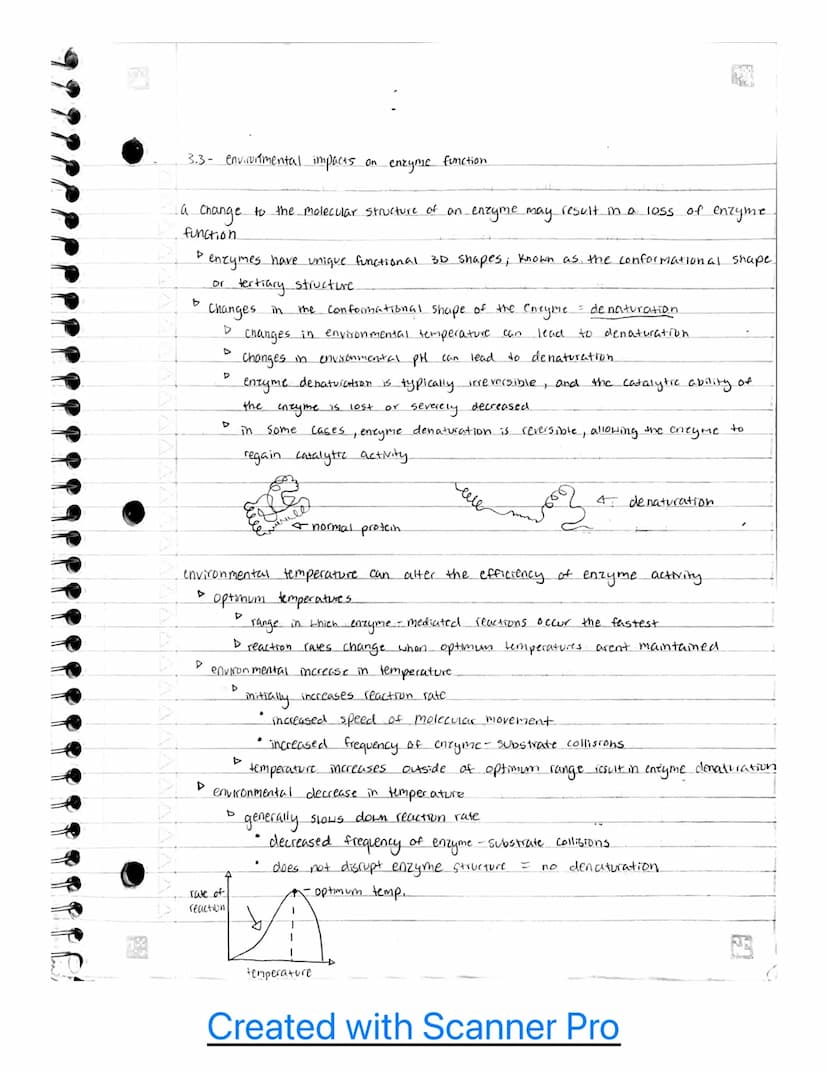 3.3- environmental impacts on enzyme function
a change to the molecular structure of an enzyme may result in a loss of enzyme
function
▹ enzymes have unique functional 3D shapes, known as the conformational shape
or tertiary structure
▹ changes in the conformational shape of the enzyme = denaturation
▹ changes in environmental temperature can lead to denaturation
▹ changes in environmental pH can lead to denaturation
▹ enzyme denaturation is typically irreversible, and the catalytic ability of
the enzyme is lost or severely decreased
▹ in some cases, enzyme denaturation is reversible, allowing the enzyme to
regain catalytic activity
← normal protein
← denaturation
environmental temperature can alter the efficiency of enzyme activity
▹ optimum temperatures
▹ range in which enzyme-mediated reactions occur the fastest
▹ reaction rates change when optimum temperatures arent maintained
▹ environmental increase in temperature
▹ initially increases reaction rate
• increased speed of molecular movement
• increased frequency of enzyme-substrate collisions
▹ temperature increases outside of optimum range result in enzyme denaturation
▹ environmental decrease in temperature
▹ generally slows down reaction rate
• decreased frequency of enzyme-substrate collisions
• does not disrupt enzyme structure = no denaturation
rate of
reaction
optimum temp.
temperature
Created with Scanner Pro